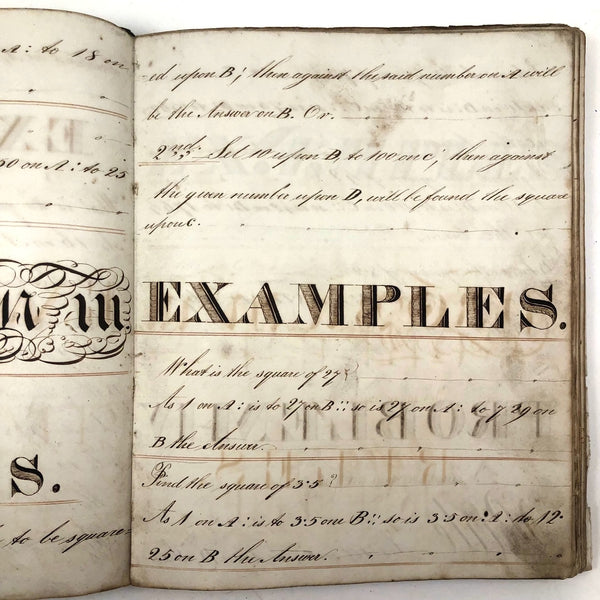 A: to 18 on
50 on A: to 25
n III.
S.
to be square=
-ed upon B; then against the said number on A will
be the Answer on B. Or.
2nd. Set 10 upon D, to 100 on C; then against
the given number upon D, will be found the square
upon C.
EXAMPLES.
What is the square of 27?
As 1 on A: is to 27 on B:: so is 27 on A: to 729 on
B the Answer.
Find the square of 3.5?
As 1 on A: is to 3.5 one B:: so is 3.5 on A: to 12.
25 on B the Answer.